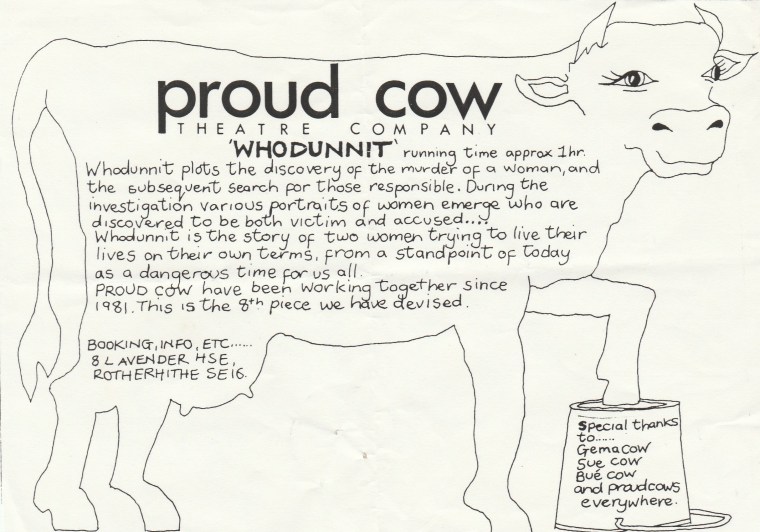 proud cow
THEATRE COMPANY
'WHODUNNIT' running time approx 1hr.
Whodunnit plots the discovery of the murder of a woman, and
the subsequent search for those responsible. During the
investigation various portraits of women emerge who are
discovered to be both victim and accused....
Whodunnit is the story of two women trying to live their
lives on their own terms, from a standpoint of today
as a dangerous time for us all.
PROUD COW have been working together since
1981. This is the 8th piece we have devised.
BOOKING, INFO, ETC......
8 LAVENDER HSE,
ROTHERHITHE SE16.
Special thanks
to......
Gemacow
Sue cow
Bué cow
and proudcows
everywhere.